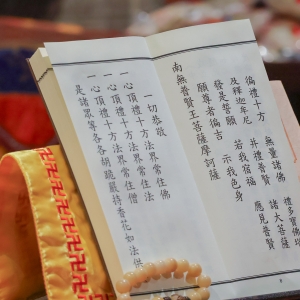 徧禮十方　無量諸佛
及釋迦牟尼　禮多寶佛塔
發是誓願　并禮普賢　諸大菩薩
願尊者徧吉　若我宿福　應見普賢
南無普賢王菩薩摩訶薩　示我色身
一切恭敬
一心頂禮十方法界常住佛
一心頂禮十方法界常住法
一心頂禮十方法界常住僧
是諸眾等各各胡跪嚴持香花如法供